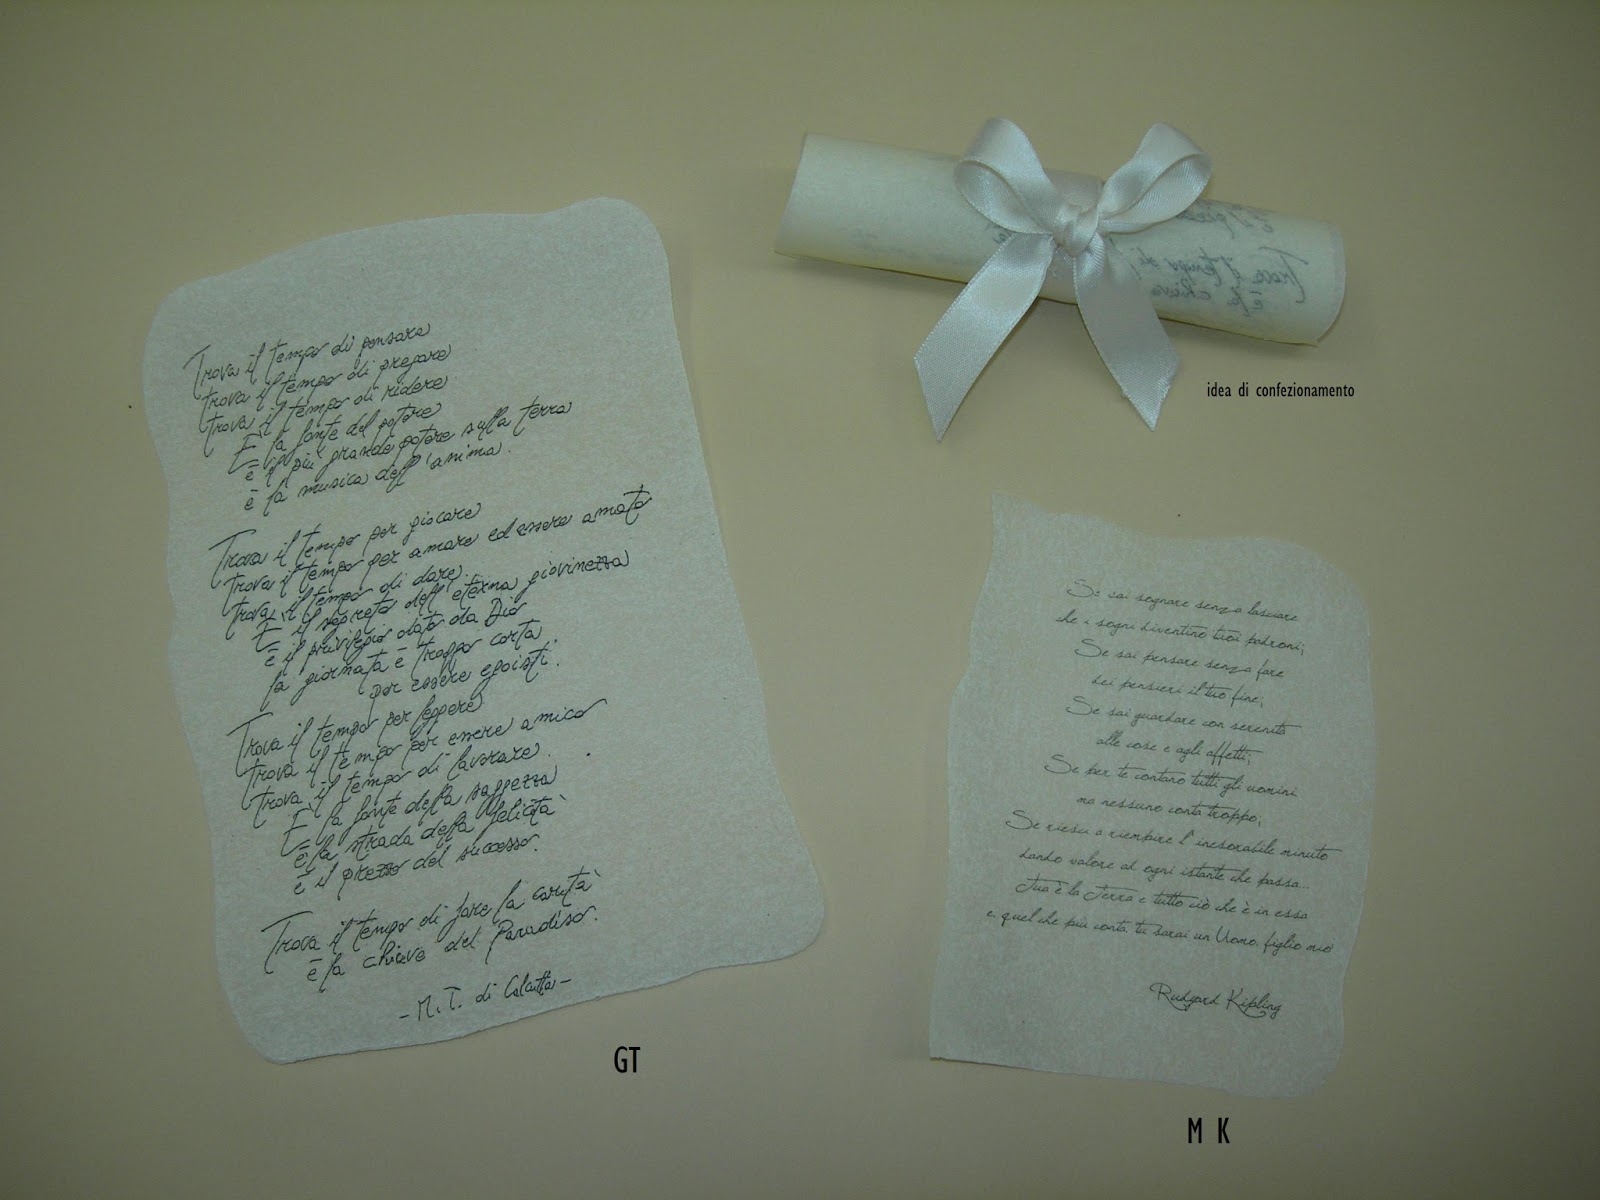 Trova il tempo di pensare
trova il tempo di pregare
trova il tempo di ridere
È la fonte del potere
è il più grande potere sulla terra
è la musica dell'anima.
Trova il tempo per giocare
trova il tempo per amare ed essere amato
trova il tempo di dare
È il segreto dell'eterna giovinezza
è il privilegio dato da Dio
la giornata è troppo corta
per essere egoisti.
Trova il tempo per leggere
trova il tempo per essere amico
trova il tempo di lavorare.
È la fonte della saggezza
è la strada della felicità
è il prezzo del successo.
Trova il tempo di fare la carità
è la chiave del Paradiso.
- M. T. di Calcutta -
GT
Trova il tempo di
è la chiave
idea di confezionamento
Se sai sognare senza lasciare
che i sogni diventino tuoi padroni;
Se sai pensare senza fare
dei pensieri il tuo fine;
Se sai guardare con serenità
alle cose e agli affetti;
Se per te contano tutti gli uomini
ma nessuno conta troppo;
Se riesci a riempire l'inesorabile minuto
dando valore ad ogni istante che passa...
Tua è la Terra e tutto ciò che è in essa
e, quel che più conta, tu sarai un Uomo, figlio mio!
Rudyard Kipling
M K